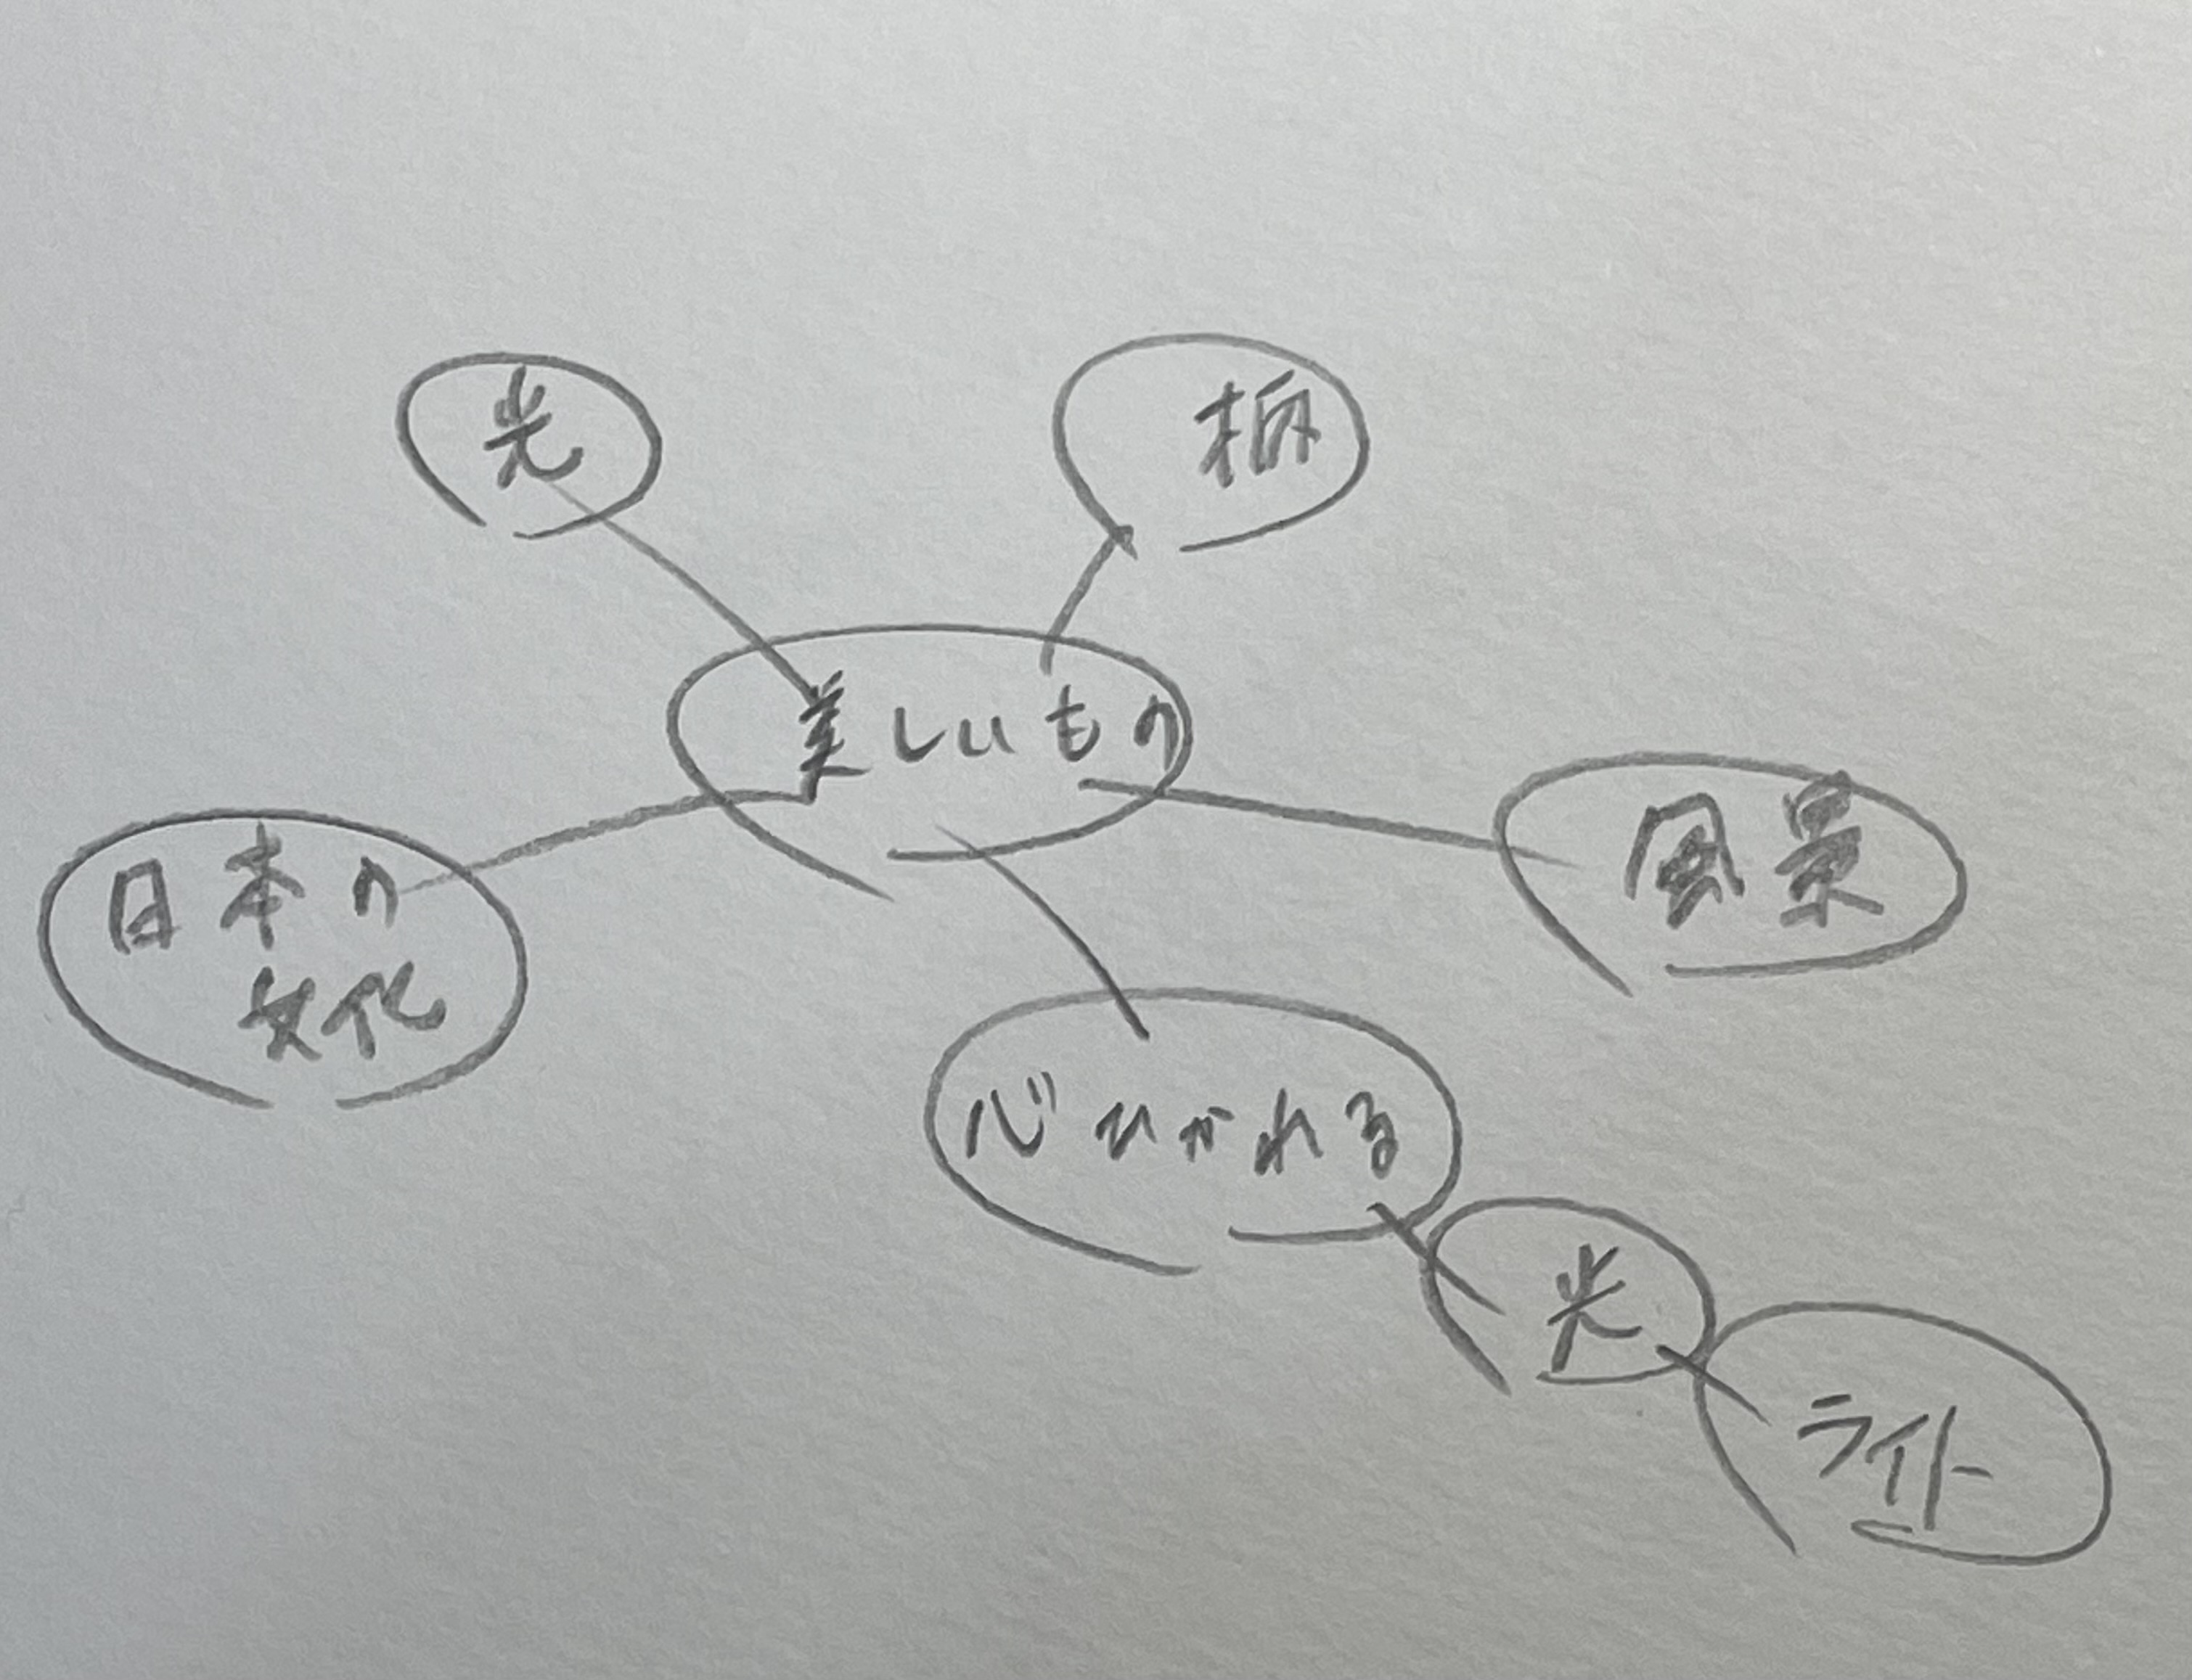 光
柄
美しいもの
日本の
文化
風景
心ひかれる
光
ライト